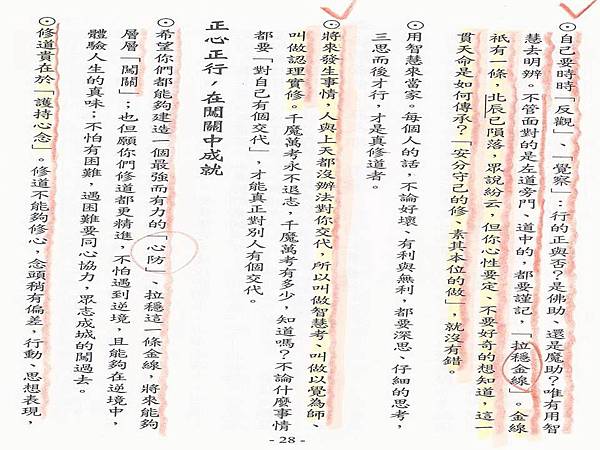 ⊙自己要時時「反觀」、「覺察」：行的正與否？是佛助、還是魔助？唯有用智
慧去明辨。不管面對的是左道旁門、道中的，都要謹記，「拉穩金線」。金線
祇有一條，北辰已隕落，眾說紛云，但你心性要定、不要好奇的想知道，這一
貫天命是如何傳承？「安分守己的修、素其本位的做」，就沒有錯。
⊙用智慧來當家。每個人的話，不論好壞、有利與無利，都要深思、仔細的思考，
三思而後才行，才是真修道者。
⊙將來發生事情，人與上天都沒辦法對你交代，所以叫做智慧考、叫做以覺為師、
叫做認理實修。千魔萬考永不退志，千魔萬考有多少，知道嗎？不論什麼事情
都要「對自己有個交代」，才能真正對別人有個交代。
正心正行，在闖關中成就
⊙希望你們都能夠建造一個最強而有力的「心防」、拉穩這一條金線，將來能夠
層層「闖關」；也但願你們修道都更精進，不怕遇到逆境，且能夠在逆境中，
體驗人生的真味；不怕有困難，遇困難要同心協力，眾志成城的闖過去。
⊙修道貴在於「護持心念」。修道不能夠修心，念頭稍有偏差，行動、思想表現，
- 28 -